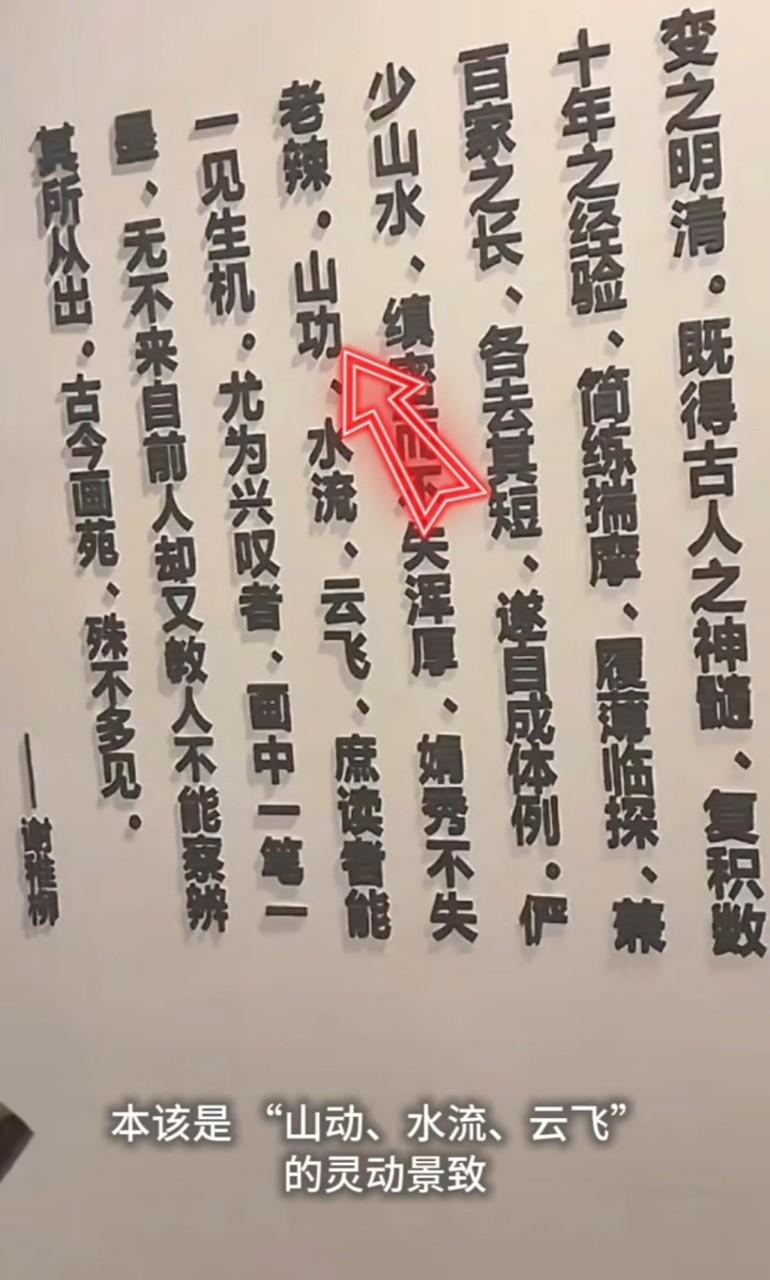 变之明清。既得古人之神髓、复积数
十年之经验、简练揣摩、履薄临探、兼
百家之长、各去其短、遂自成体例。俨
少山水、缜密而不失浑厚、娟秀不失
老辣。山功、水流、云飞、庶读者能
一见生机。尤为兴叹者、画中一笔一
墨、无不来自前人却又教人不能察辨
其所从出。古今画苑、殊不多见。
——谢稚柳
本该是“山动、水流、云飞”
的灵动景致